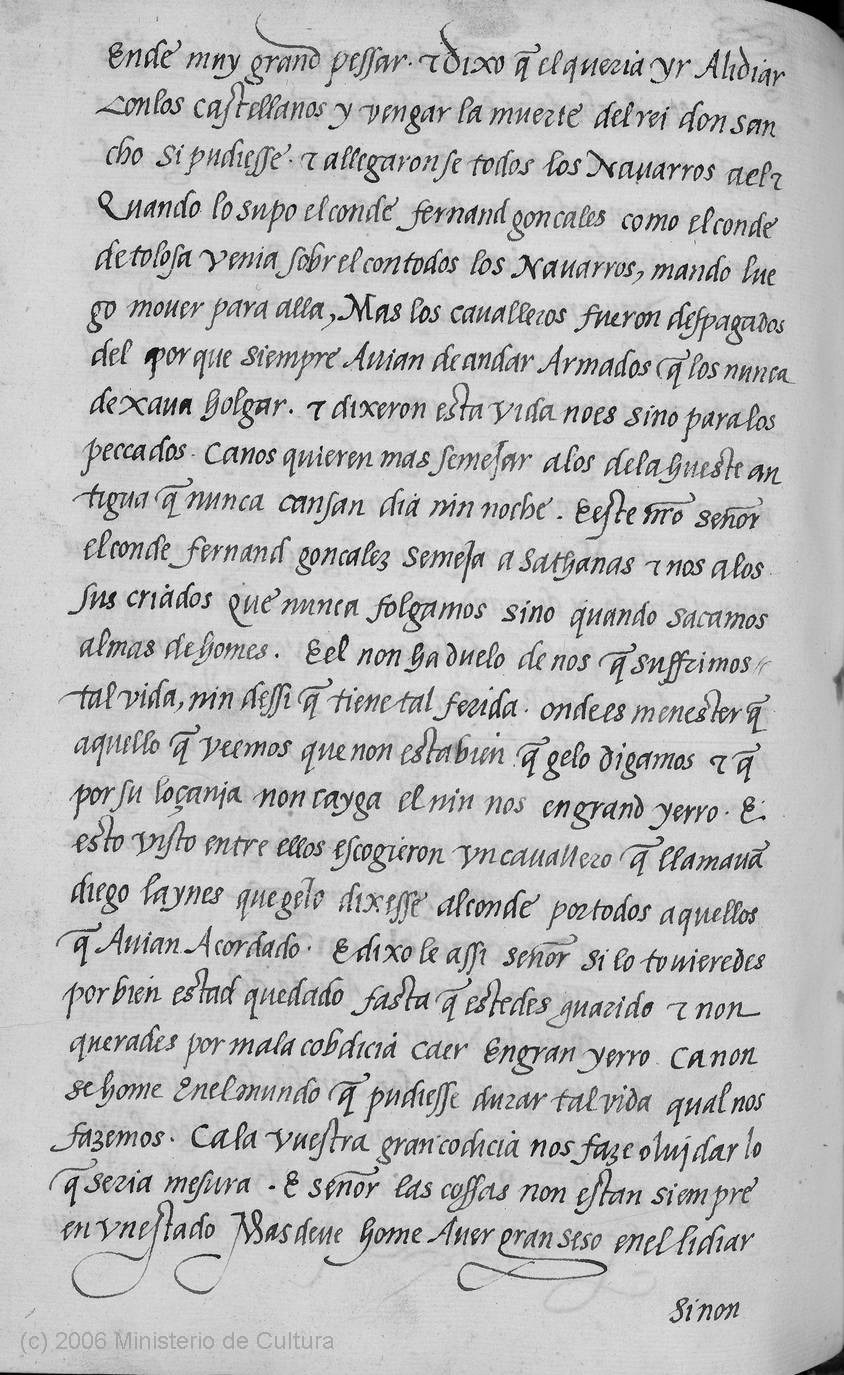 Ende muy grand pessar. τ dixo q̃ el queria yr A lidiar
Con los castellanos y vengar la muerte del rei don san
cho si pudiesse. τ allegaronse todos los Navarros a el τ
Quando lo supo el conde fernand goncales como el conde
de tolosa venia sobr el con todos los Navarros, mando lue
go mover para alla, Mas los cavalleros fueron despagados
del por que siempre Avian de andar Armados q̃ los nunca
dexava holgar. τ dixeron esta vida no es sino para los
peccados. Ca nos quieren mas semejar a los de la hueste an
tigua q̃ nunca cansan dia nin noche. E este nr̃o señor
el conde fernand goncalez semeja a sathanas τ nos a los
sus criados que nunca folgamos sino quando sacamos
almas de homes. E el non ha duelo de nos q̃ suffrimos
tal vida, nin dessi q̃ tiene tal ferida. onde es menester q̃
aquello q̃ veemos que non esta bien q̃ gelo digamos τ q̃
por su loçania non cayga el nin nos en grand yerro. E
esto visto entre ellos escogieron vn cavallero q̃ llamavã
diego laynes que gelo dixesse al conde por todos aquellos
q̃ Avian Acordado. E dixo le assi señor si lo tovieredes
por bien estad quedado fasta q̃ estedes guarido τ non
querades por mala cobdicia caer En gran yerro Ca non
se home Enel mundo q̃ pudiesse durar tal vida qual nos
fazemos. Ca la vuestra gran codicia nos faze olvidar lo
q̃ seria mesura. E señor las cossas non estan siempre
en vn estado Mas deve home Aver gran seso en el lidiar
Sinon
(c) 2006 Ministerio de Cultura